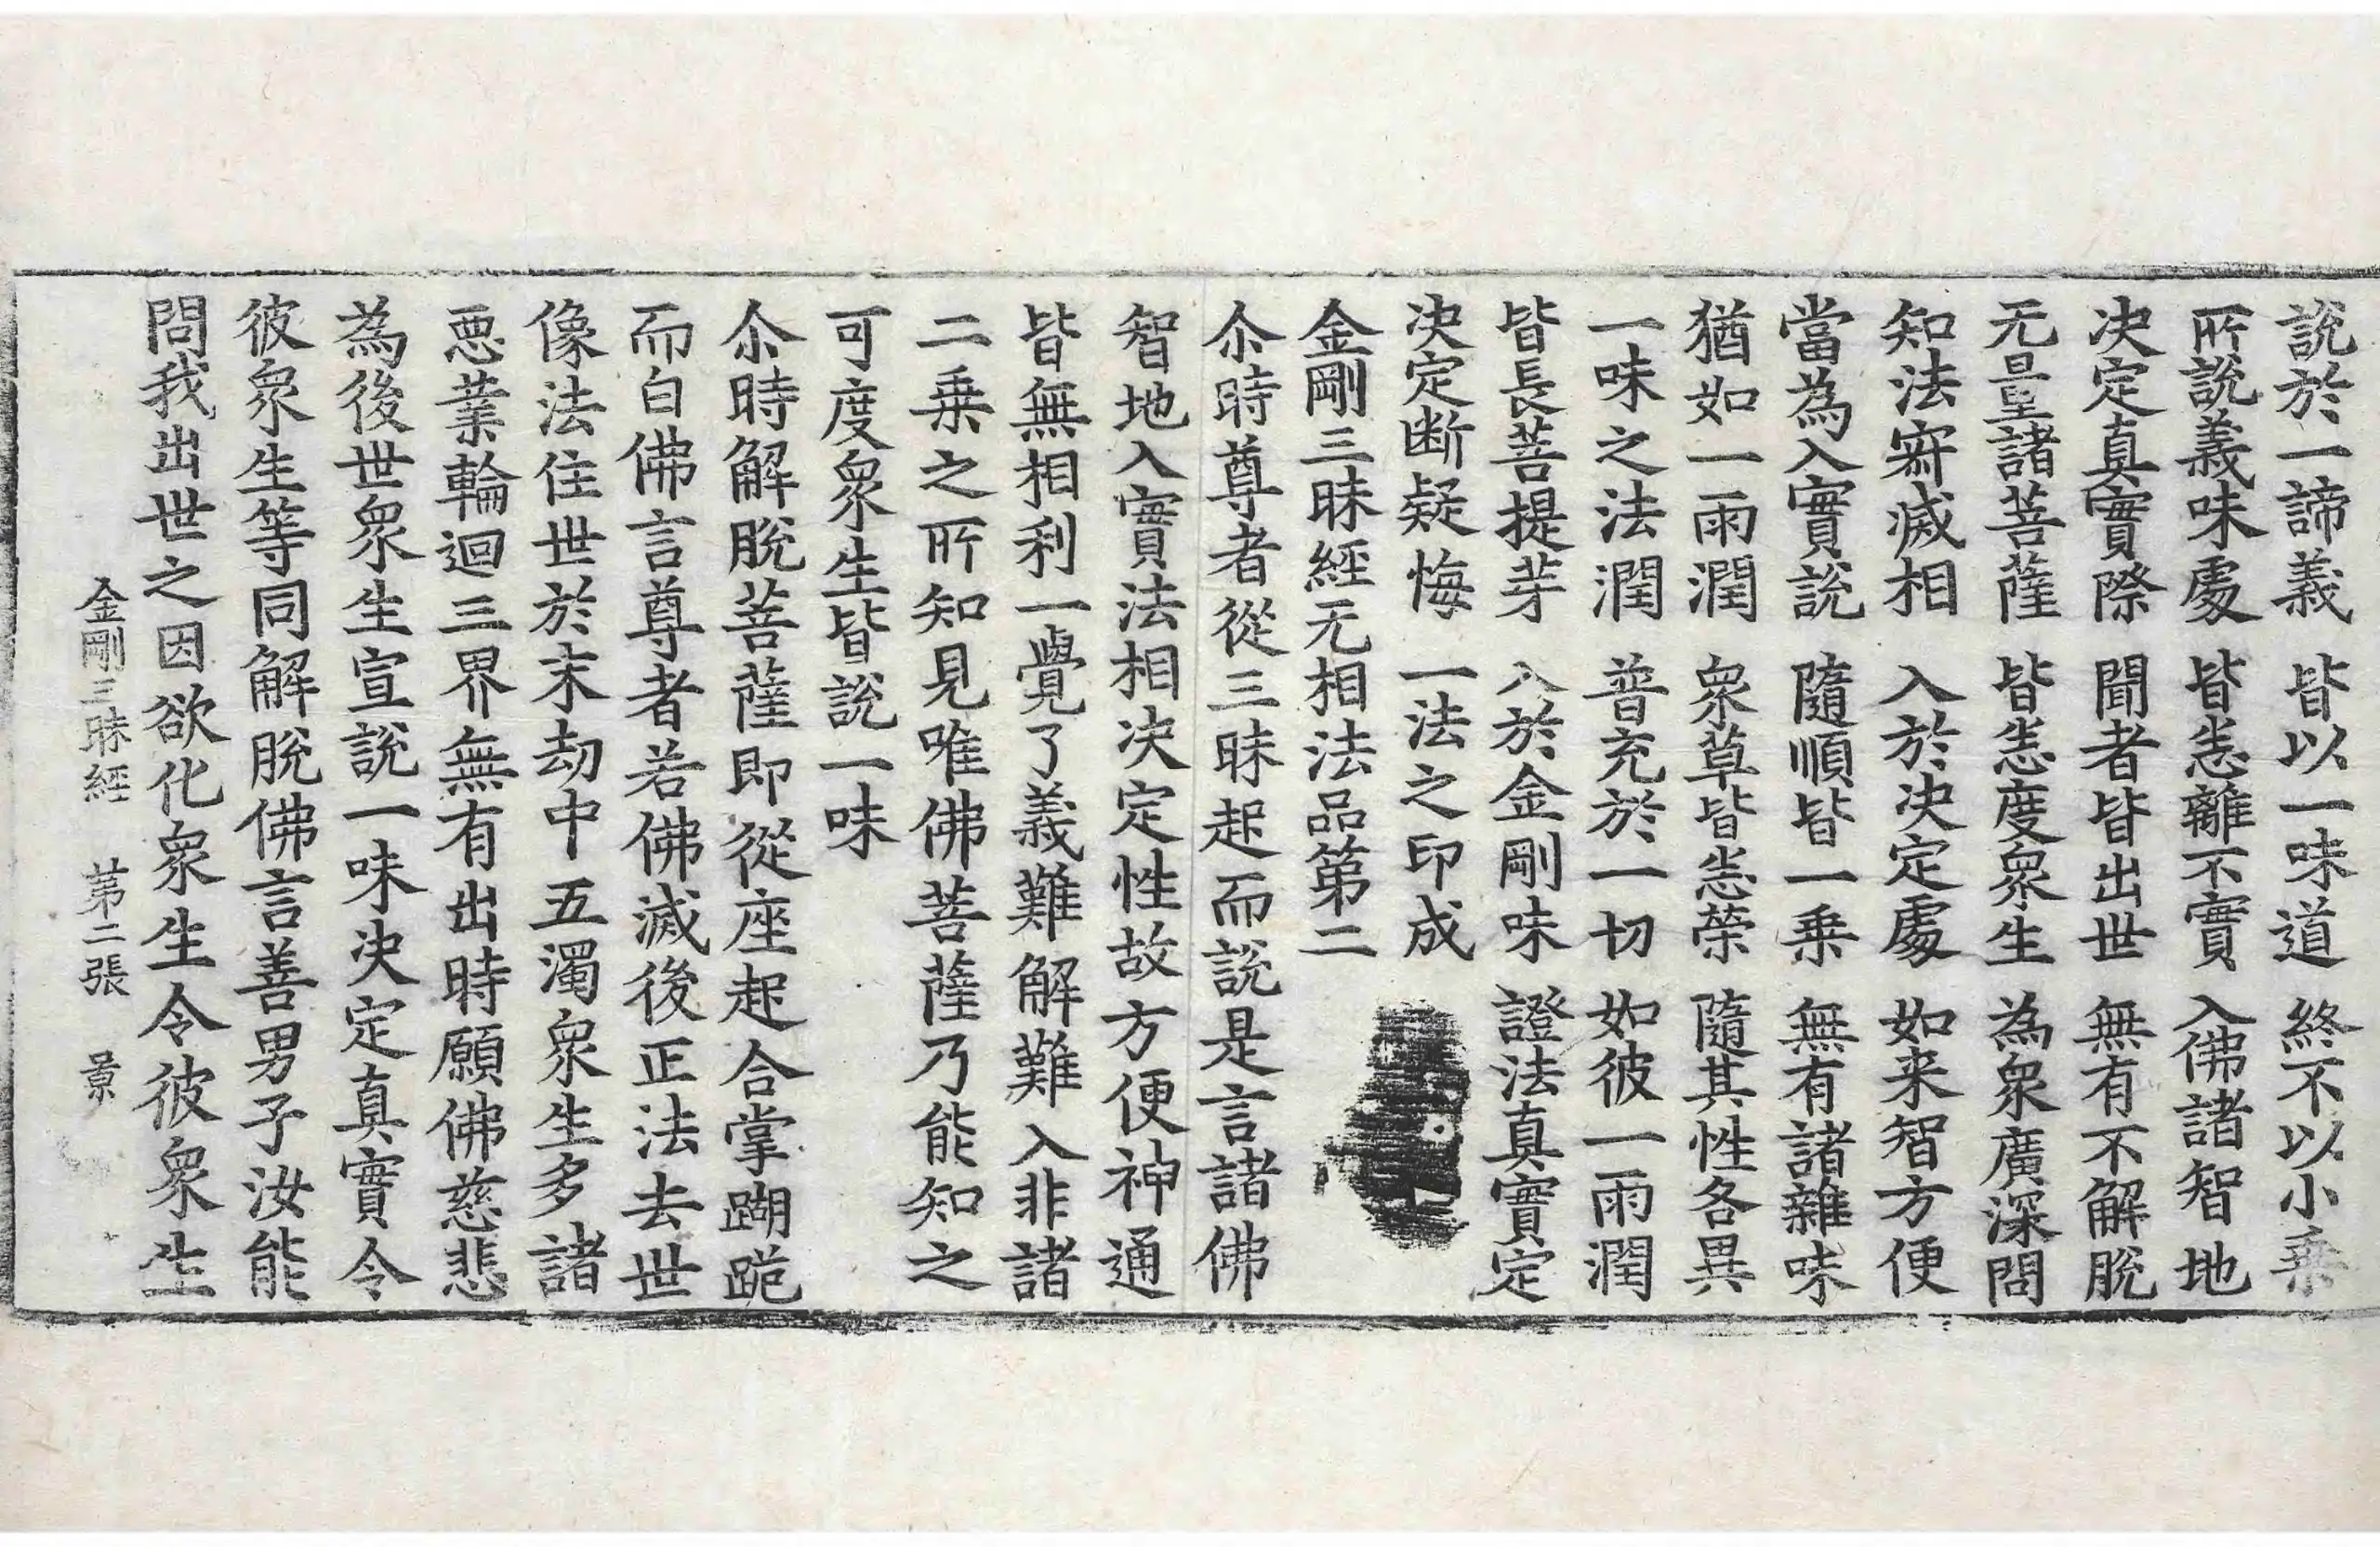 說於一諦義　皆以一味道　終不以小乗
所說義味處　皆悉離不實　入佛諸智地
决定真實際　聞者皆出世　無有不解脫
无量諸菩薩　皆悉度衆生　為衆廣深問
知法寂滅相　入於决定處　如来智方便
當為入實說　隨順皆一乗　無有諸雜味
猶如一雨潤　衆草皆悉榮　隨其性各異
一味之法潤　普充於一切　如彼一雨潤
皆長菩提芽　入於金剛味　證法真實定
决定断疑悔　一法之印成
金剛三昧經无相法品第二
尒時尊者從三昧起而說是言諸佛
智地入實法相决定性故方便神通
皆無相利一覺了義難解難入非諸
二乗之所知見唯佛菩薩乃能知之
可度衆生皆說一味
尒時解脫菩薩即從座起合掌蹦跪
而白佛言尊者若佛滅後正法去世
像法住世於末劫中五濁衆生多諸
惡業輪迴三界無有出時願佛慈悲
為後世衆生宣說一味决定真實令
彼衆生等同解脫佛言善男子汝能
問我出世之因欲化衆生令彼衆生
金剛三昧經　第二張　景